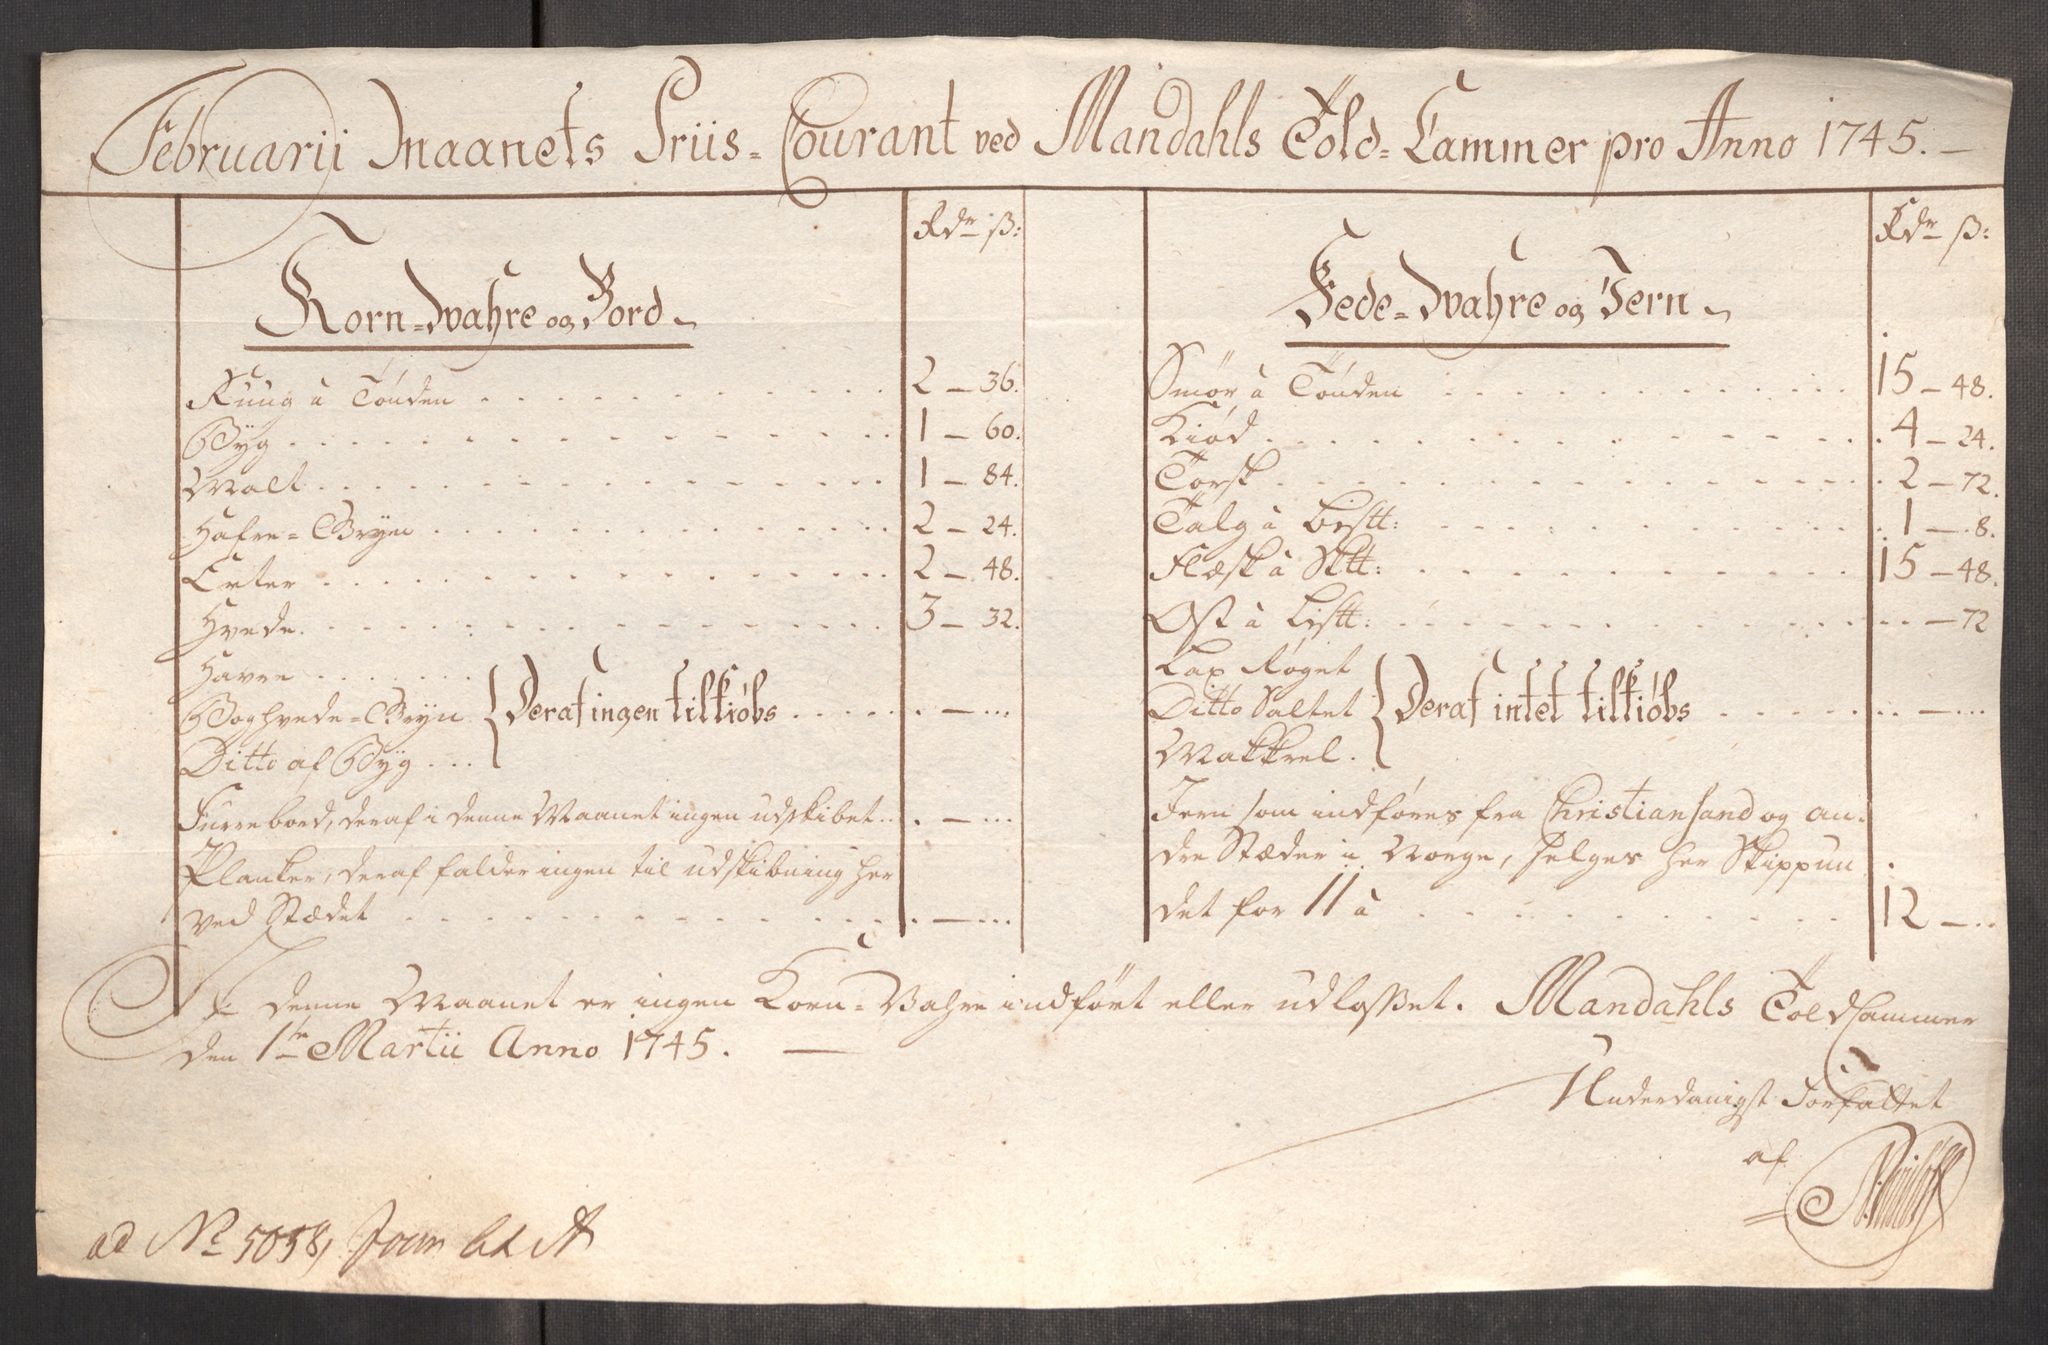 Februarii Maanets Priis-Courant ved Mandahls Told-Cammer pro Anno 1745.
Rdr ß:
Korn-Wahre og Bord
Ruug à Tønden 2 - 36.
Byg 1 - 60.
Malt 1 - 84.
Hafre-Gryn 2 - 24.
Erter 2 - 48.
Hvede 3 - 32.
Havre
Boghvede-Gryn Deraf ingen tilkiøbs
Ditto af Byg
Furrebord, deraf i denne Maanet ingen udskibet
Planker, deraf falder ingen til udskibning her
ved Stædet
Rdr ß:
Fede-Wahre og Jern
Smør à Tønden 15 - 48.
Kiød 4 - 24.
Torsk 2 - 72.
Talg à Listt: 1 - 8.
Flæsk à Sktt: 15 - 48.
Ost à Listt: - 72
Lax Røget
Ditto Saltet Deraf intet tilkiøbs
Makkrel.
Jern som indføres fra Christiansand og an-
dre Stæder i Norge, selges her Skippun
det for 11 à 12 -
I denne Maanet er ingen Korn-Vahre indført eller udlosset. Mandahls ToldCammer
den 1te Martii Anno 1745.
Underdanigst Forfattet
af
ad No 5058, Journ Lit A